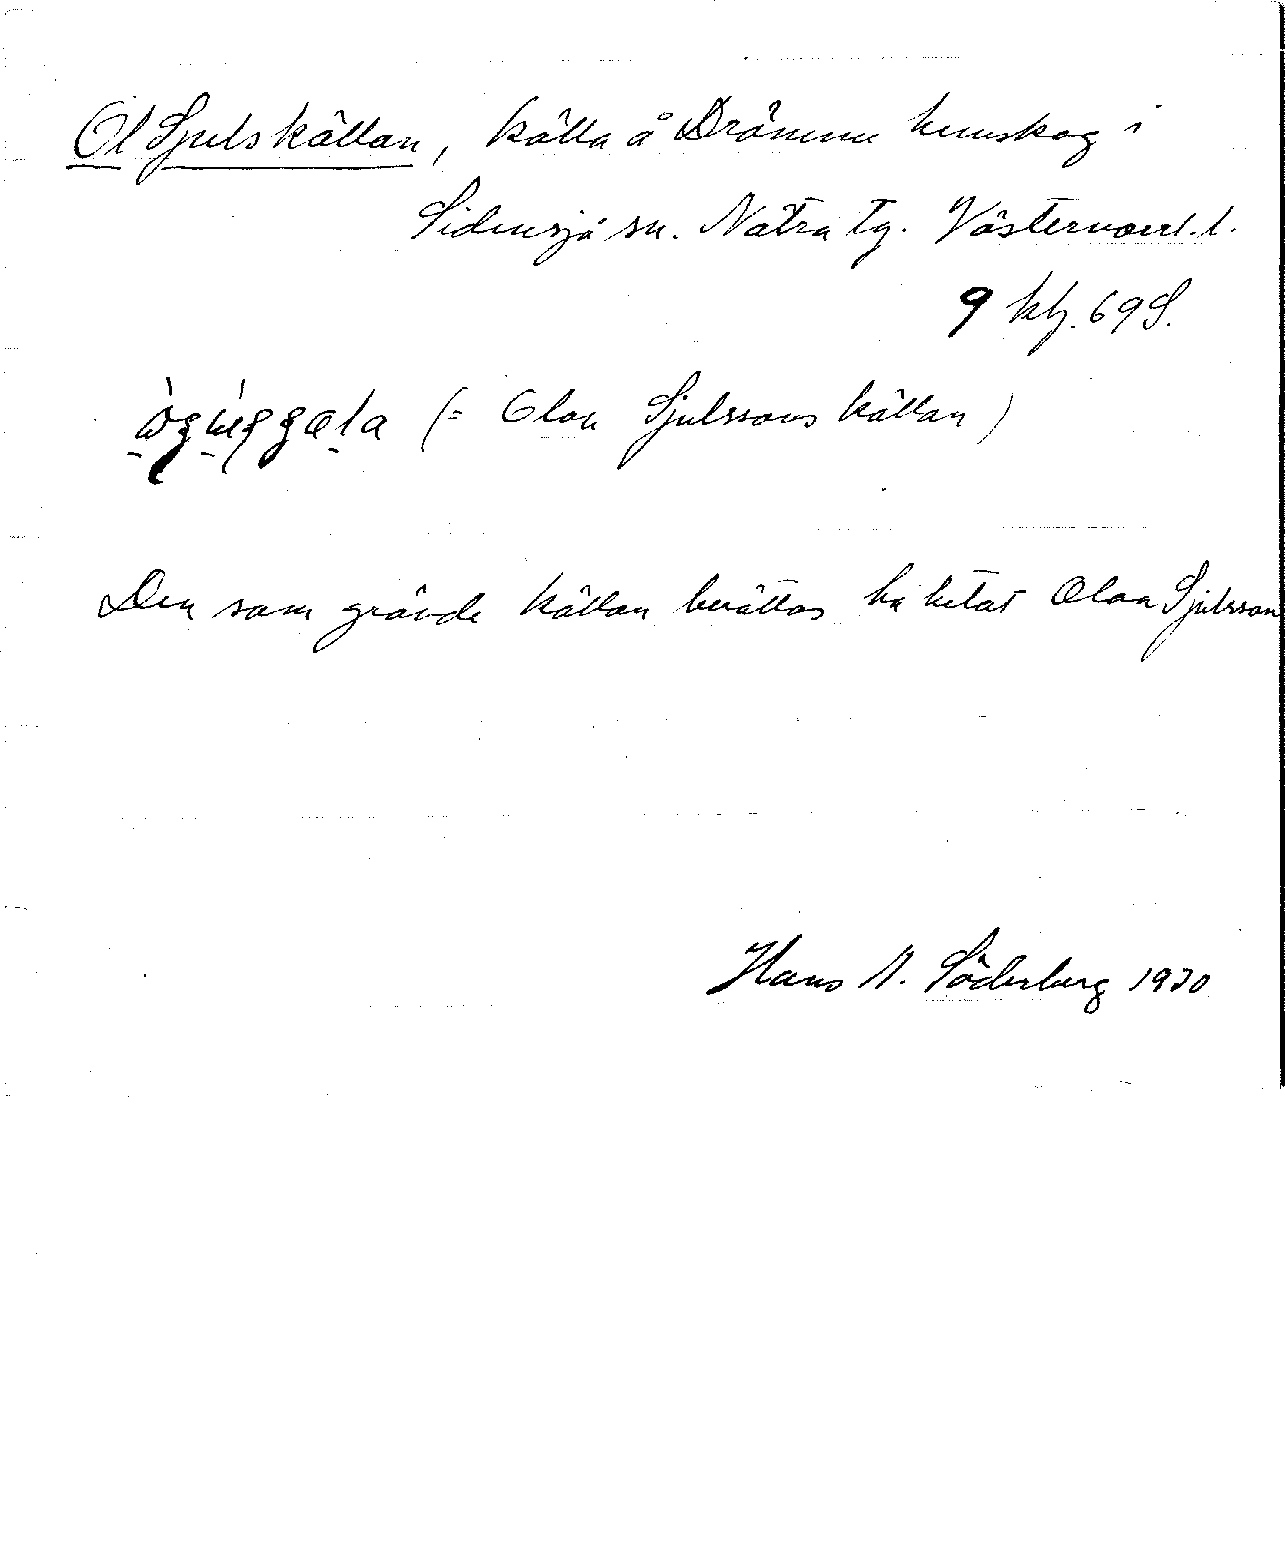 Ol Sjulskällan, källa å Drömme hemskog i
Sidensjö sn. Nätra tg. Västernorrl. l.
9 kfz. 69 S.
(= Olon Sjulssons källan)
Den som grävde källan berättas ha hetat Olon Sjulsson
Hans N. Söderberg 1930